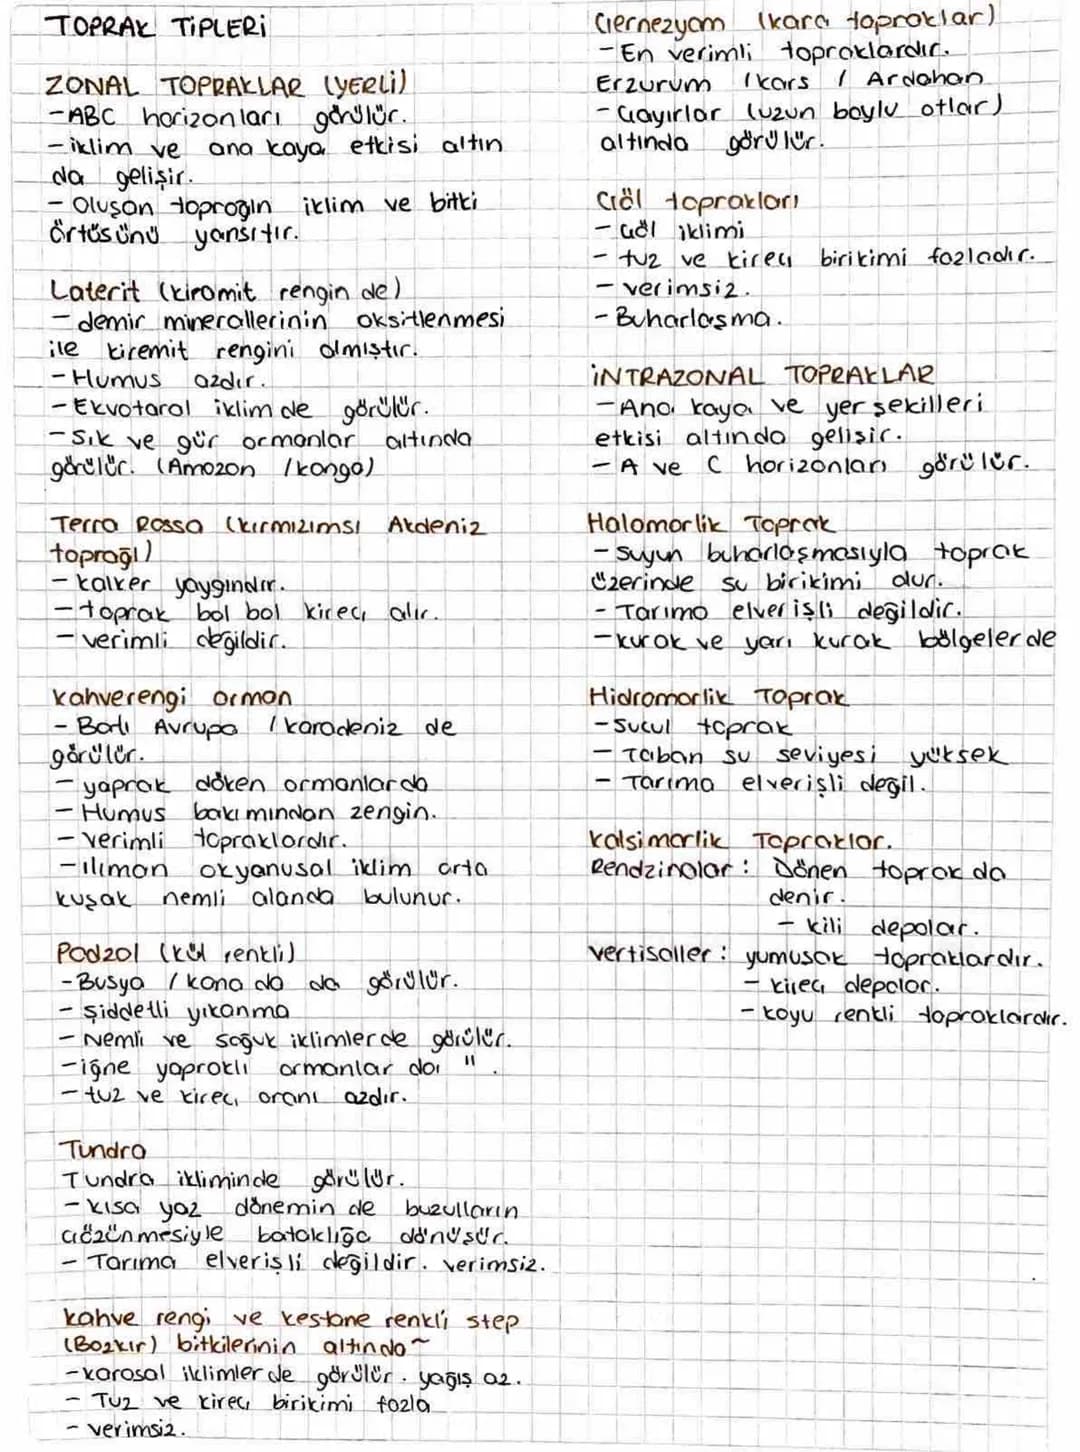 TOPRAK TİPLERİ
ZONAL TOPRAKLAR (YERLİ)
-ABC horizonları görülür.
-iklim ve ana kaya etkisi altın
da gelişir.
- Oluşan toprağın iklim ve bitki
örtüsünü yansıtır.
Laterit (kiromit rengin de)
- demir minerallerinin oksitlenmesi
ile kiremit rengini almıştır.
-Humus azdır.
-Ekvotaral iklim de görülür.
-Sık ve gür ormanlar altında
görülür. (Amazon /kongo)
Terra Rossa (kırmızımsı Akdeniz
toprağı)
- kalker yaygındır.
-toprak bol bol kireç alır.
- verimli değildir.
kahverengi orman
- Batı Avrupa /karadeniz de
görülür.
- yaprak döken ormanlarda
- Humus bakımından zengin.
- verimli topraklardır.
-ılıman okyanusal iklim orta
kuşak nemli alanda bulunur.
Podzol (kül renkli)
-Busya /kana da da görülür.
- şiddetli yıkanma
- Nemli ve soğuk iklimlerde görülür.
-iğne yapraklı ormanlar da " .
- tuz ve kireç oranı azdır.
Tundra
Tundra ikliminde görülür.
- kısa yaz dönemin de buzulların
çözünmesiyle bataklığa dönüşür.
- Tarıma elverişli değildir. verimsiz.
kahve rengi ve kestane renkli step
(Bozkır) bitkilerinin altında~
-karasal iklimlerde görülür. yağış az.
- Tuz ve kireç birikimi fazla
- verimsiz.
Çernezyom (kara topraklar)
-En verimli topraklardır.
Erzurum /kars / Ardahan
- Çayırlar (uzun boylu otlar)
altında görülür.
Çöl toprakları
- çöl iklimi
- tuz ve kireç birikimi fazladır.
- verimsiz.
- Buharlaşma.
İNTRAZONAL TOPRAKLAR
-Ana kaya ve yer şekilleri
etkisi altında gelişir.
- A ve C horizonları görülür.
Halomorlik Toprak
- suyun buharlaşmasıyla toprak
üzerinde su birikimi olur.
- Tarıma elverişli değildir.
-kurak ve yarı kurak bölgelerde
Hidromorlik Toprak
-Sucul toprak
- Taban su seviyesi yüksek
- Tarıma elverişli değil.
kalsimorlik Topraklar.
Rendzinalar : Dönen toprak da
denir.
- kili depolar.
vertisoller : yumuşak topraklardır.
- kireç depolar.
- koyu renkli topraklardır.